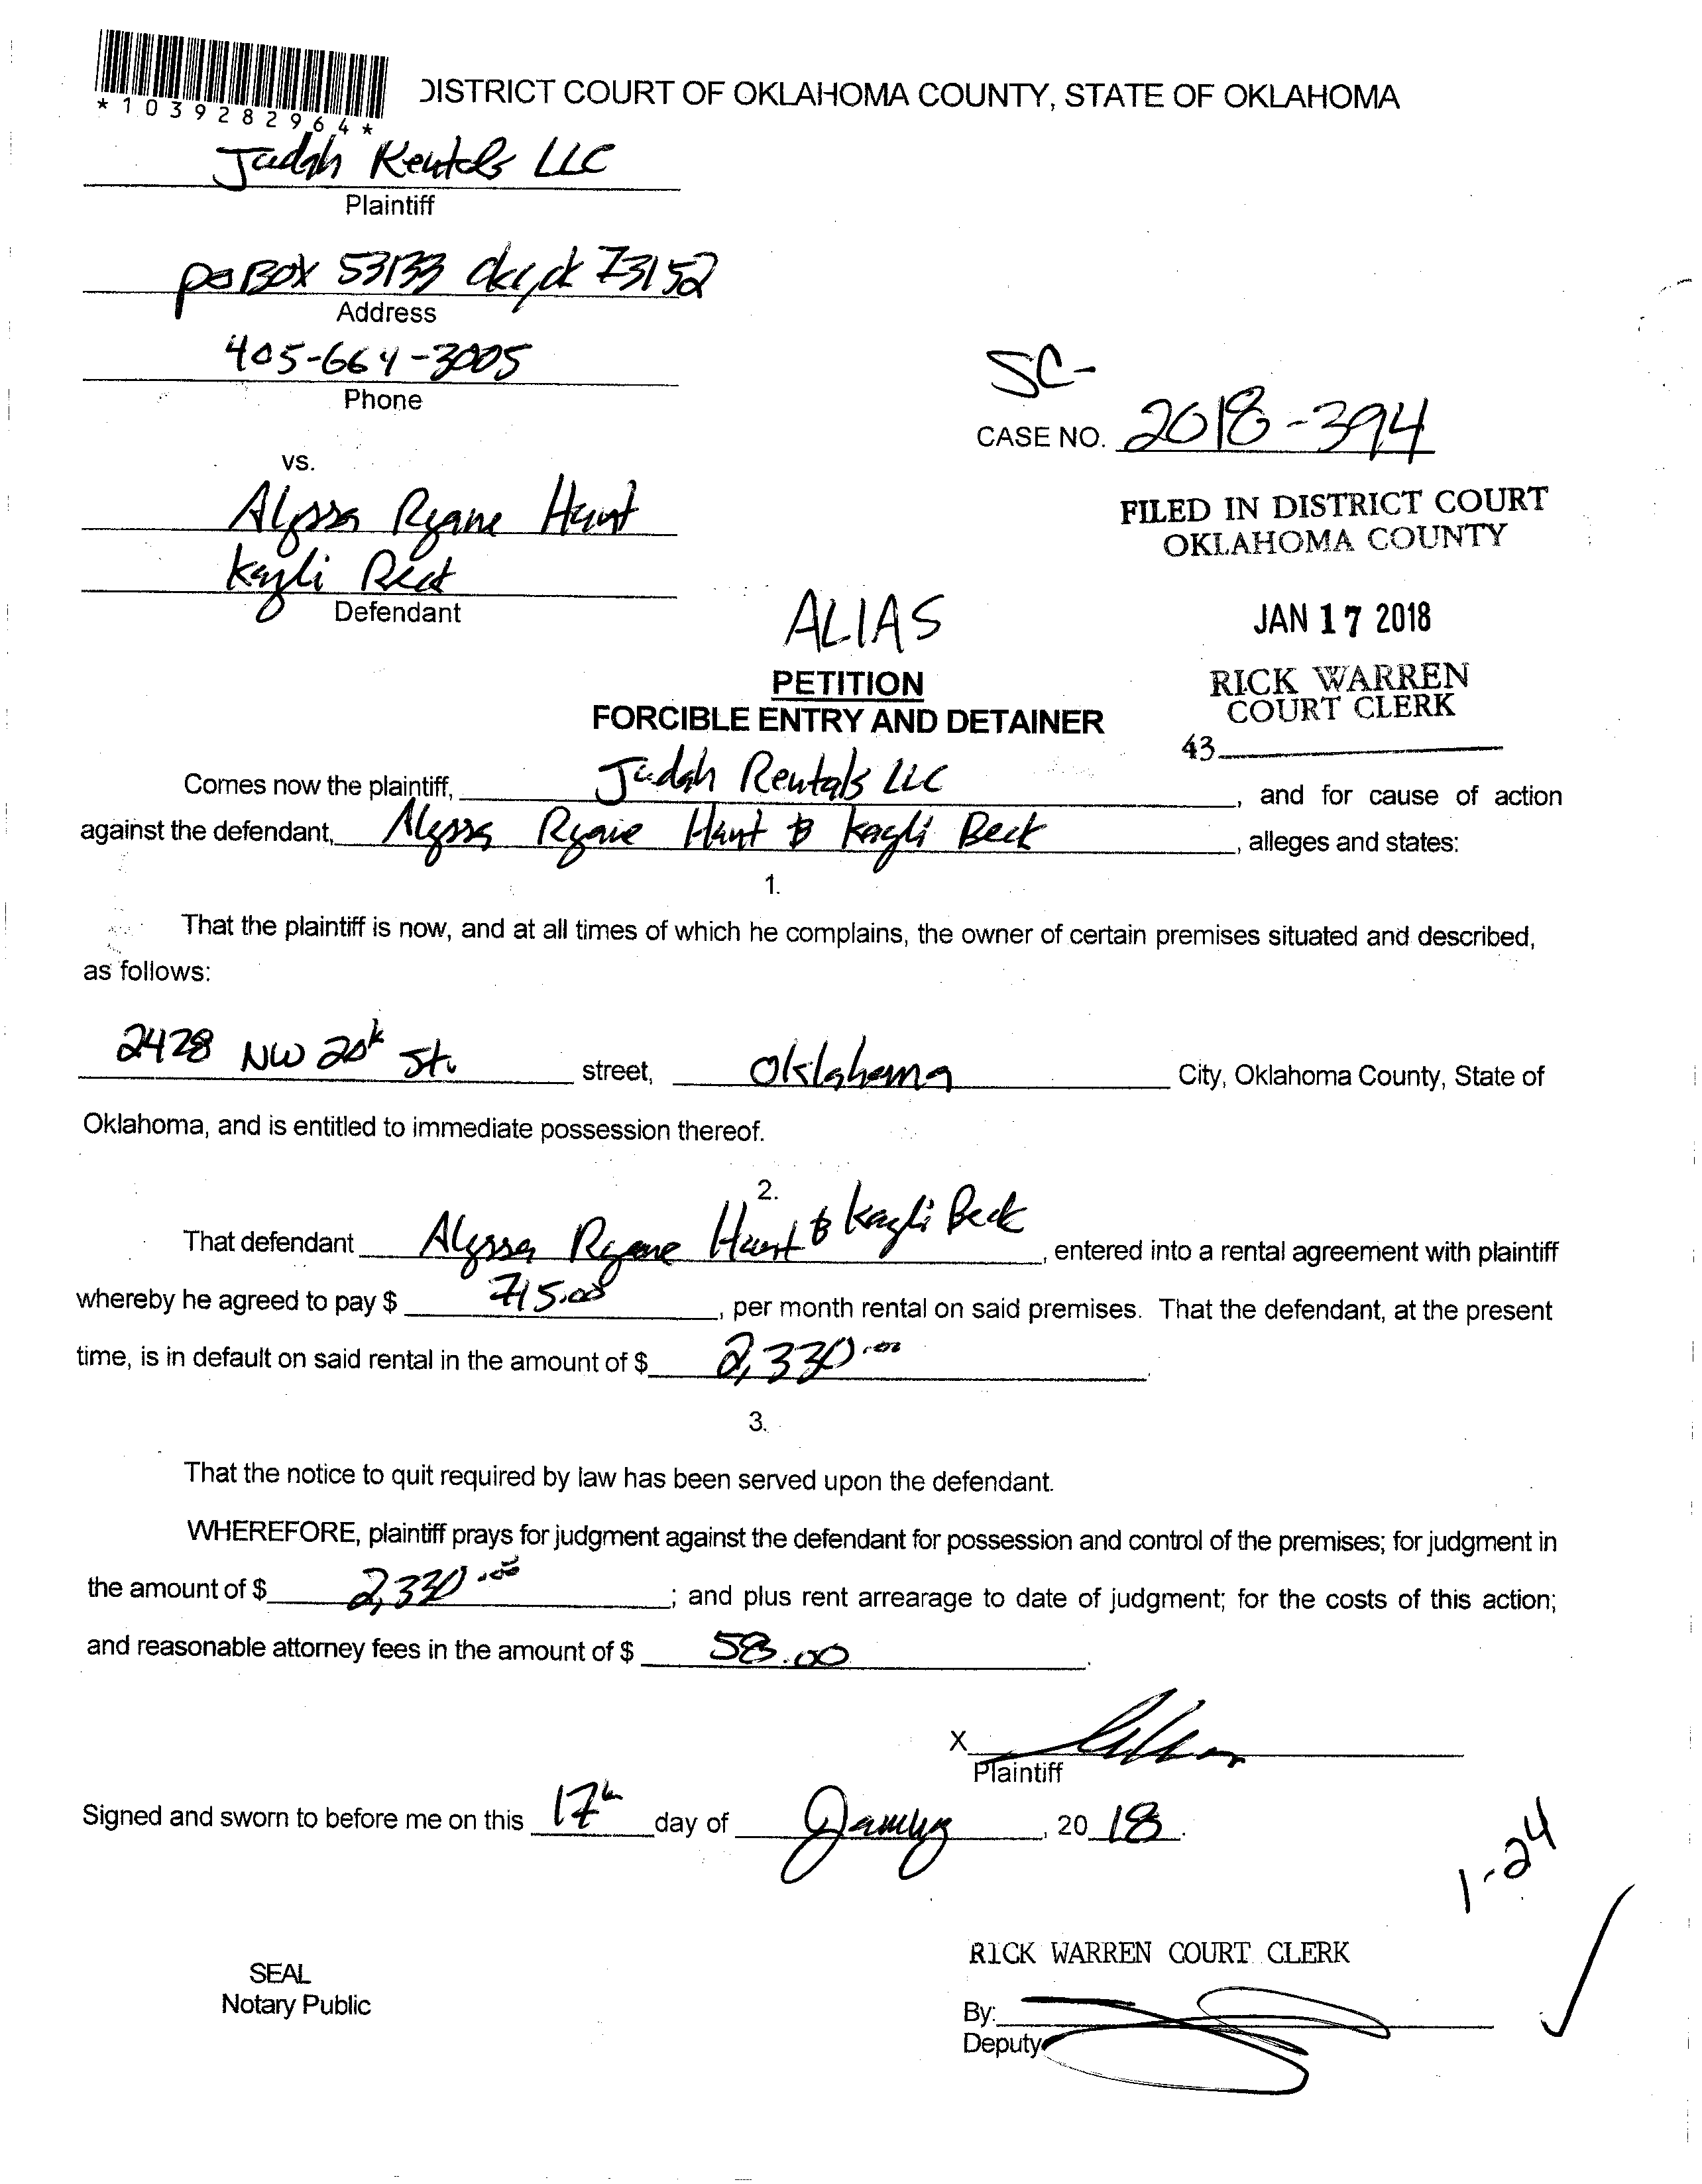 *1039282964*
DISTRICT COURT OF OKLAHOMA COUNTY, STATE OF OKLAHOMA
Judah Rentals LLC
Plaintiff
po Box 53133 okc, ok 73152
Address
405-664-3005
Phone
SC-
CASE NO. 2018-394
vs.
Alyssa Ryane Hunt
Kayli Beck
Defendant
FILED IN DISTRICT COURT
OKLAHOMA COUNTY
JAN 17 2018
RICK WARREN
COURT CLERK
43
ALIAS
PETITION
FORCIBLE ENTRY AND DETAINER
Comes now the plaintiff, Judah Rentals LLC, and for cause of action
against the defendant, Alyssa Ryane Hunt & Kayli Beck, alleges and states:
1.
That the plaintiff is now, and at all times of which he complains, the owner of certain premises situated and described,
as follows:
2428 NW 20th St. street, Oklahoma City, Oklahoma County, State of
Oklahoma, and is entitled to immediate possession thereof.
2.
That defendant Alyssa Ryane Hunt & Kayli Beck, entered into a rental agreement with plaintiff
whereby he agreed to pay $ 715.00, per month rental on said premises. That the defendant, at the present
time, is in default on said rental in the amount of $ 2,330.00.
3.
That the notice to quit required by law has been served upon the defendant.
WHEREFORE, plaintiff prays for judgment against the defendant for possession and control of the premises; for judgment in
the amount of $ 2,330.00; and plus rent arrearage to date of judgment; for the costs of this action;
and reasonable attorney fees in the amount of $ 58.00.
X
Plaintiff
Signed and sworn to before me on this 17th day of January, 2018.
1-24
RICK WARREN COURT CLERK
SEAL
Notary Public
By:
Deputy